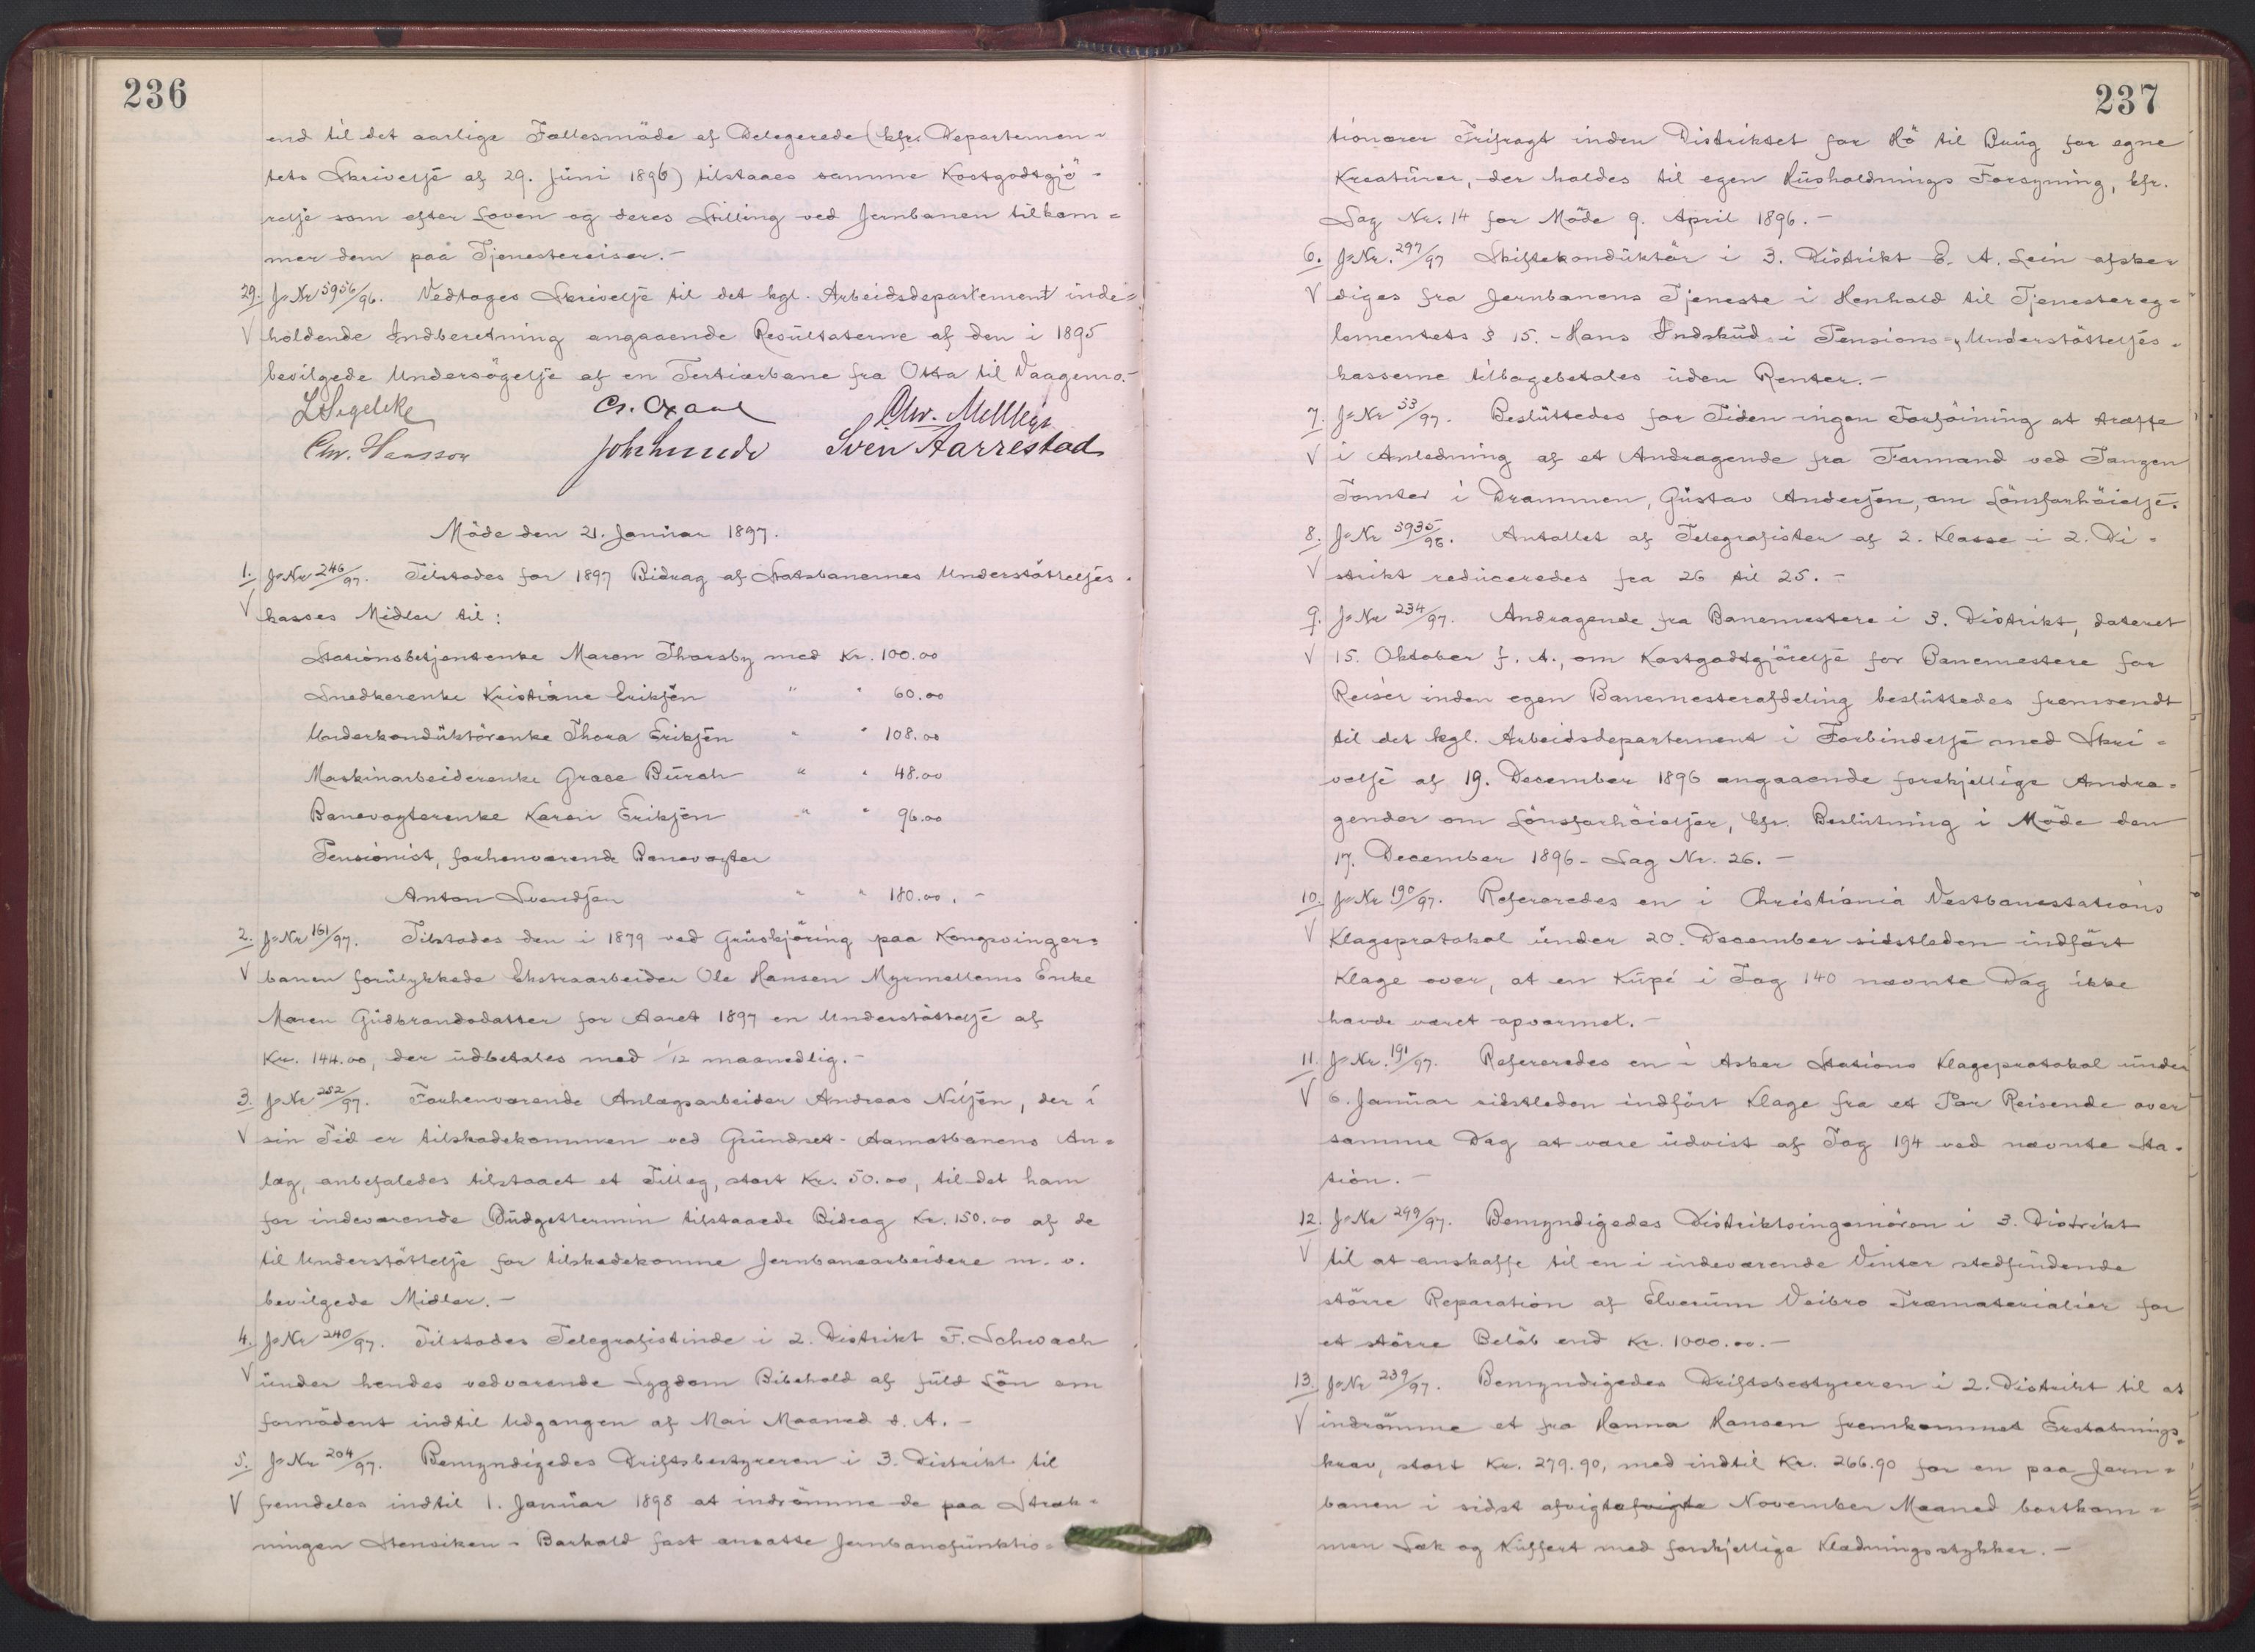 236
end til det aarlige Fællesmöde af Delegerede (kfr. Departemen-
tets Skrivelse af 29. Juni 1896) tilstaaes samme Kostgodtgjö-
relse som efter Loven og deres Stilling ved Jernbanen tilkom-
mer dem paa Tjenestereiser.-
29. J-Nr 5956/96. Vedtoges Skrivelse til det kgl. Arbeidsdepartement inde-
V holdende Indberetning angaaende Resultaterne af den i 1895
bevilgede Undersögelse af en Tertiærbane fra Otta til Vaagemo.-
L Segelcke
Chr. Hansson
Joh Lunde
Sven Aarrestad
Möde den 21. Januar 1897.
1. J-Nr 246/97. Tilstodes for 1897 Bidrag af Statsbanernes Understöttelses-
V kasses Midler til:
Stationsbetjentenke Maren Thorsby med Kr. 100.00
Snedkerenke Kristiane Eriksen " " 60.00
Underkonduktörenke Thora Eriksen " " 108.00
Maskinarbeiderenke Grace Burch " " 48.00
Banevogterenke Karen Eriksen " " 96.00
Pensionist, forhenværende Banevogter
Anton Svendsen " " 180.00.-
2. J-Nr 161/97. Tilstodes den i 1879 ved Gruskjöring paa Kongsvinger-
V banen forulykkede Ekstraarbeider Ole Hansen Myrmellems Enke
Maren Gudbrandsdatter for Aaret 1897 en Understöttelse af
Kr. 144.00, der udbetales med 1/12 maanedlig.-
3. J-Nr 252/97. Forhenværende Anlægsarbeider Andreas Nilsen, der i
V sin Tid er tilskadekommen ved Grundset-Aamotbanens An-
læg, anbefaledes tilstaaet et Tillæg, stort Kr. 50.00, til det ham
for indeværende Budgettermin tilstaaede Bidrag Kr. 150.00 af de
til Understöttelse for tilskadekomne Jernbanearbeidere m. v.
bevilgede Midler.-
4. J-Nr 240/97. Tilstodes Telegrafistinde i 2. Distrikt F. Schwach
V under hendes vedvarende Sygdom Bibehold af fuld Lön om
fornödent indtil Udgangen af Mai Maaned d. A.-
5. J-Nr 204/97. Bemyndigedes Driftsbestyreren i 3. Distrikt til
V fremdeles indtil 1. Januar 1898 at indrömme de paa Stræk-
ningen Stensiken - Barkald fast ansatte Jernbanefunktio-
237
tionærer Frifragt inden Distriktet for Hö til Brug for egne
Kreaturer, der holdes til egen Husholdnings Forsyning, kfr.
Sag Nr. 14 for Möde 9. April 1896.-
6. J-Nr. 297/97 Skiftekonduktör i 3. Distrikt E. A. Lein afske-
V diges fra Jernbanens Tjeneste i Henhold til Tjenestereg-
lementets § 15. - Hans Indskud i Pensions- og Understöttelses-
kasserne tilbagebetales uden Renter.-
7. J-Nr 53/97. Besluttedes for Tiden ingen Forföining at træffe
V i Anledning af et Andragende fra Formand ved Tangen
Tomter i Drammen, Gustav Andersen, om Lönsforhöielse.
8. J-Nr 5935/96. Antallet af Telegrafister af 2. Klasse i 2. Di-
V strikt reduceredes fra 26 til 25.-
9. J-Nr 234/97. Andragende fra Banemestere i 3. Distrikt, dateret
V 15. Oktober f. A., om Kostgodtgjörelse for Banemestere for
Reiser inden egen Banemesterafdeling besluttedes fremsendt
til det kgl. Arbeidsdepartement i Forbindelse med Skri-
velse af 19. December 1896 angaaende forskjellige Andra-
gender om Lönsforhöielser, kfr. Beslutning i Möde den
17. December 1896 - Sag Nr. 26.-
10. J-Nr. 190/97. Refereredes en i Christiania Vestbanestations
V Klageprotokol under 20. December sidstleden indfört
Klage over, at en Kupé i Tog 140 nævnte Dag ikke
havde været opvarmet.-
11. J-Nr. 191/97. Refereredes en i Asker Stations Klageprotokol under
V 6. Januar sidstleden indfört Klage fra et Par Reisende over
samme Dag at være udvist af Tog 194 ved nævnte Sta-
tion.-
12. J-Nr 299/97. Bemyndigedes Distriktsingeniören i 3. Distrikt
V til at anskaffe til en i indeværende Vinter stedfindende
större Reparation af Elverum Veibro Træmaterialier for
et större Belöb end Kr. 1000.00.-
13. J-Nr 239/97. Bemyndigedes Driftsbestyreren i 2. Distrikt til at
V indrömme et fra Hanna Hansen fremkommet Erstatnings-
krav, stort Kr. 279.90, med indtil Kr. 266.90 for en paa Jern-
banen i sidst afvigte afvigte November Maaned bortkom-
men Sæk og Kuffert med forskjellige Klædningsstykker.-